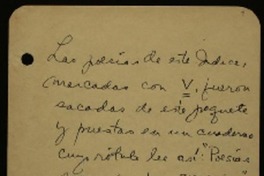 Las poesías de este Indice,
marcadas con V, fueron
sacadas de este paquete
y puestas en un cuaderno
cuyo rótulo lee así: "Poesías